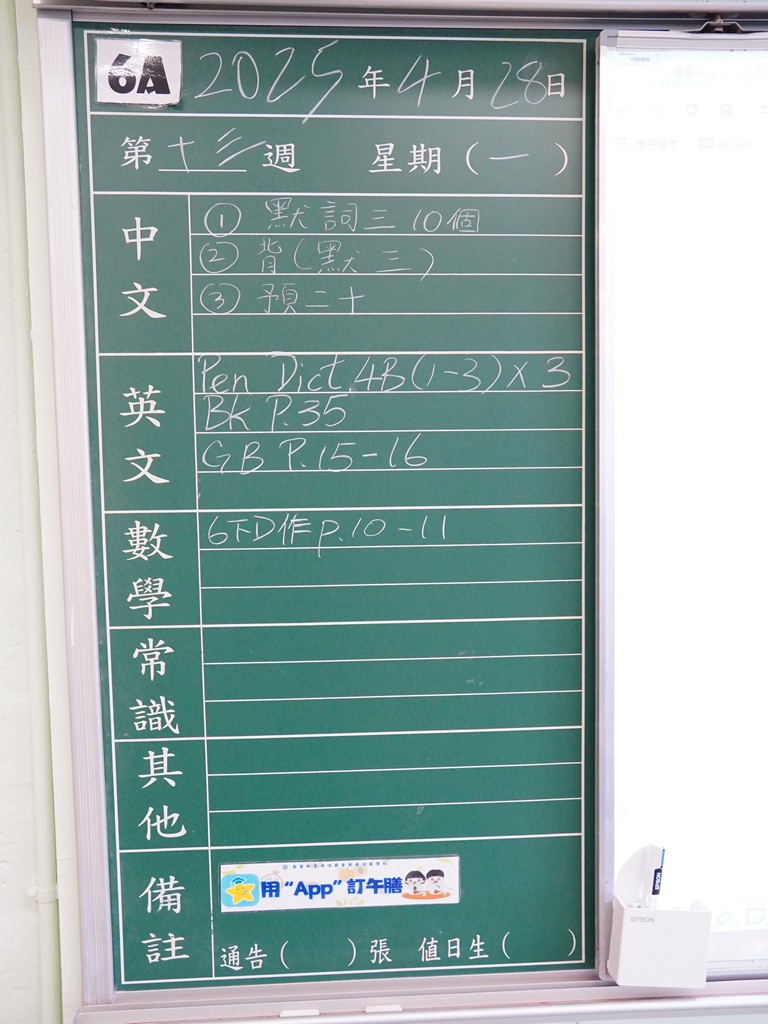 6A 2025年4月28日
第十三週 星期(一)
中文
① 默詞三 10個
② 背(默三)
③ 預二十
英文
Pen Dict.4B(1-3)x3
BK P.35
GB P.15-16
數學
6下D作p.10-11
常識
其他
備註
用“App”訂午膳
通告( )張 值日生( )
EPSON
EPSON